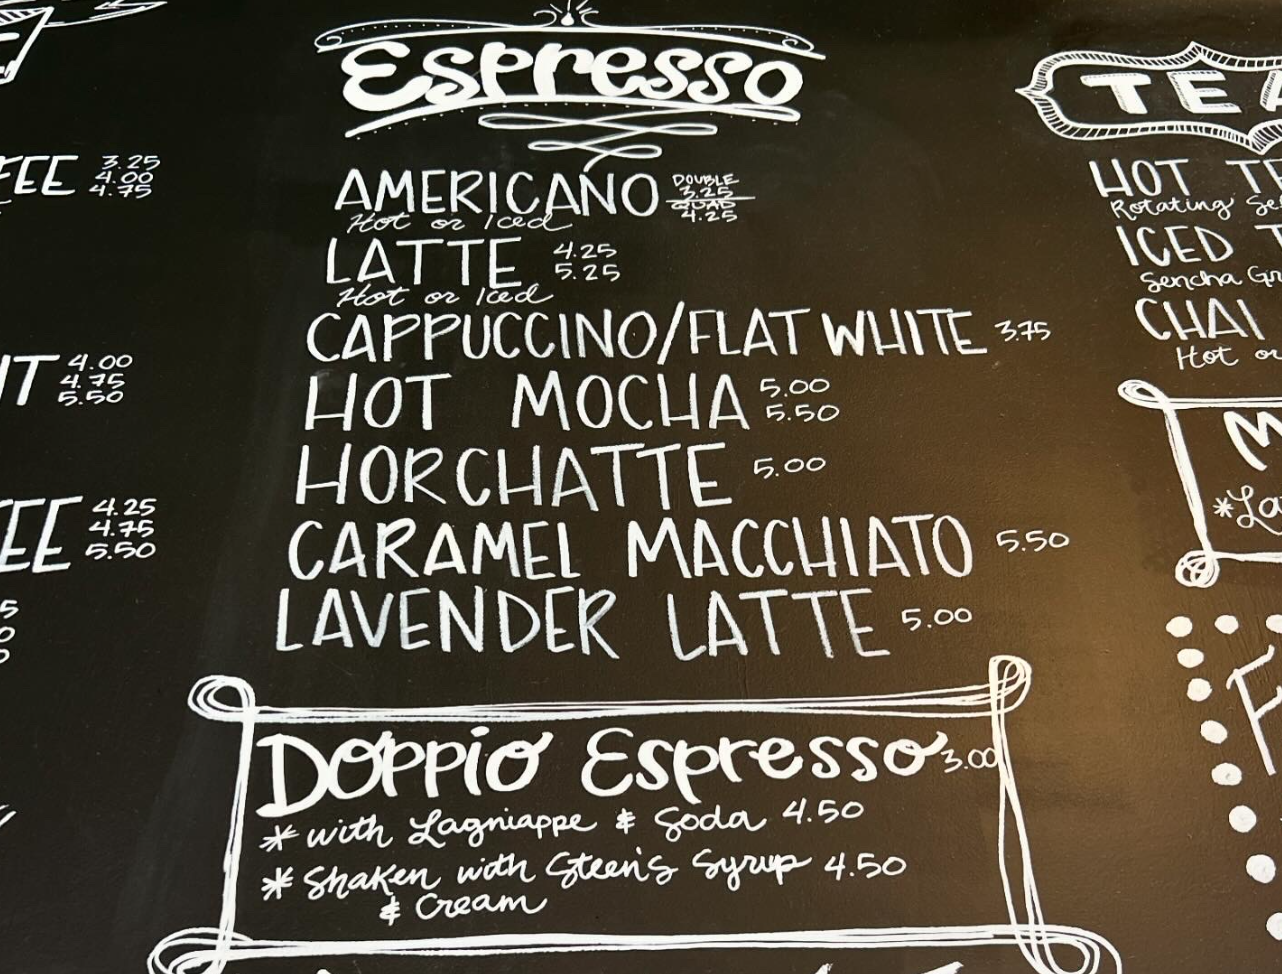 Espresso
AMERICANO DOUBLE 3.25 QUAD 4.25
Hot or Iced
LATTE 4.25 5.25
Hot or Iced
CAPPUCCINO/FLAT WHITE 3.75
HOT MOCHA 5.00 5.50
HORCHATTE 5.00
CARAMEL MACCHIATO 5.50
LAVENDER LATTE 5.00
Doppio Espresso 3.00
* with Lagniappe & Soda 4.50
* Shaken with Steen's Syrup 4.50
& Cream
3.25
4.00
4.75
4.00
4.75
5.50
4.25
4.75
5.50
TEA
HOT
Rotating
ICED
Sencha
CHAI
Hot or